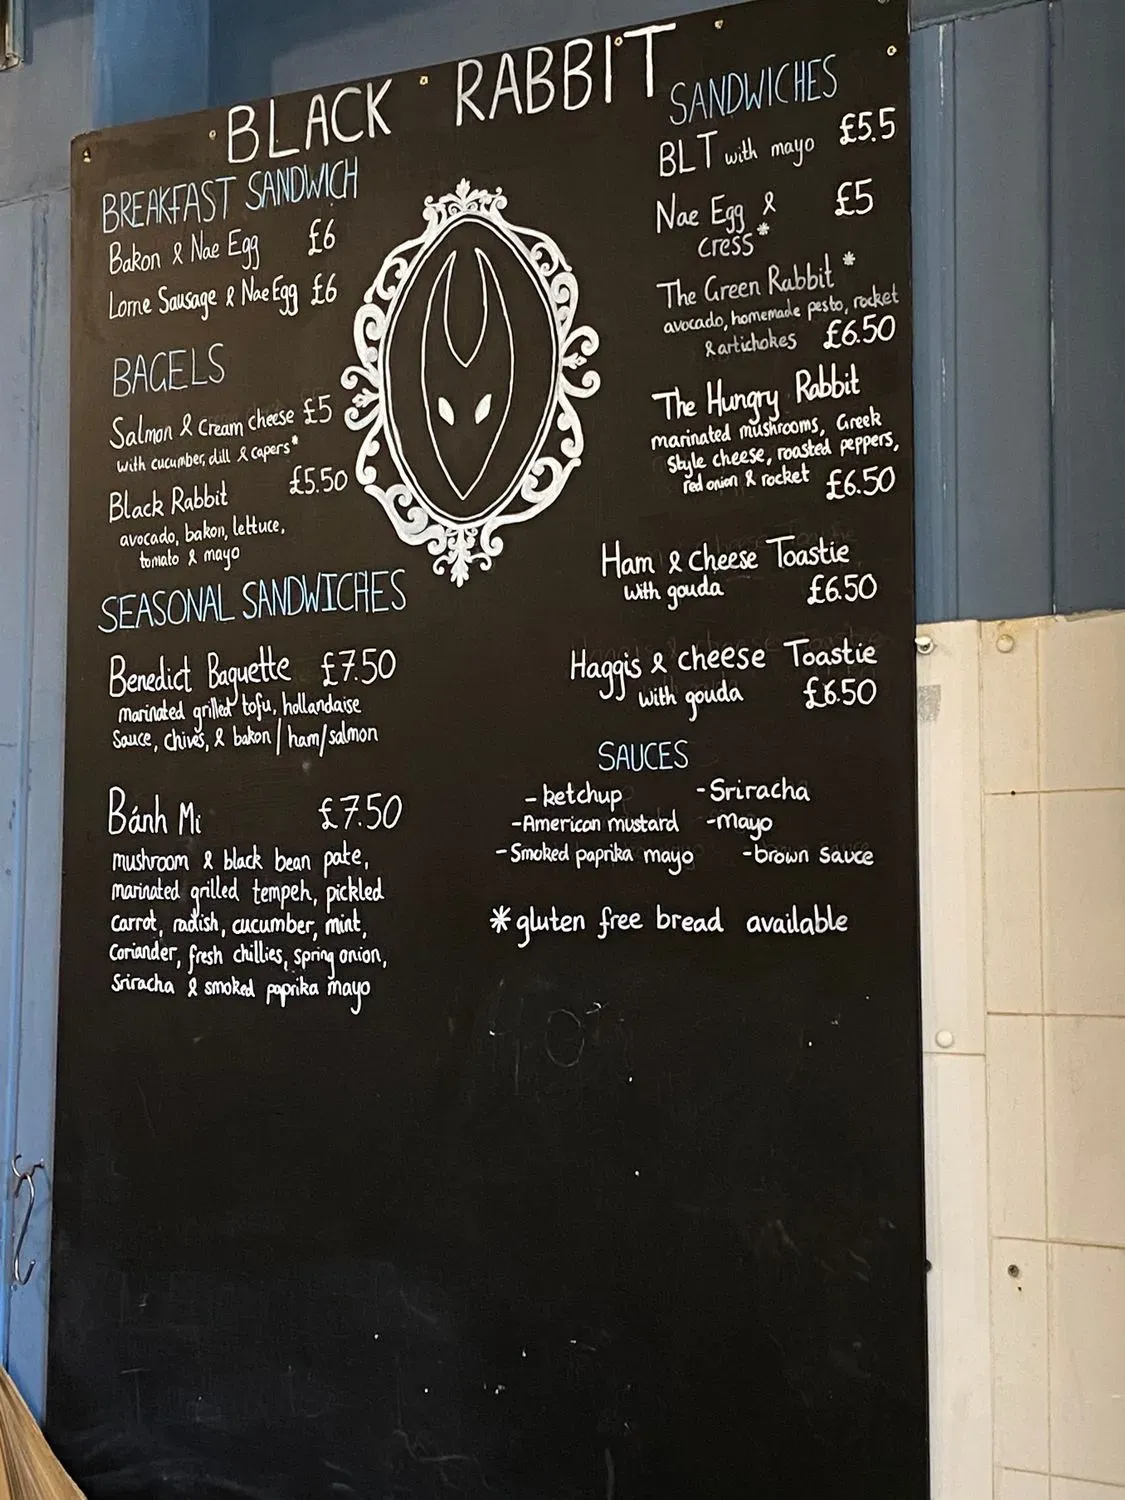 BLACK RABBIT
BREAKFAST SANDWICH
Bakon & Nae Egg £6
Lorne Sausage & Nae Egg £6
BAGELS
Salmon & cream cheese £5
with cucumber, dill & capers*
Black Rabbit £5.50
avocado, bakon, lettuce,
tomato & mayo
SEASONAL SANDWICHES
Benedict Baguette £7.50
marinated grilled tofu, hollandaise
Sauce, chives, & bakon/ham/salmon
Bánh Mi £7.50
mushroom & black bean pate,
marinated grilled tempeh, pickled
Carrot, radish, cucumber, mint,
Coriander, fresh chillies, spring onion,
Sriracha & smoked paprika mayo
SANDWICHES
BLT with mayo £5.5
Nae Egg & £5
cress*
The Green Rabbit *
avocado, homemade pesto, rocket
& artichokes £6.50
The Hungry Rabbit
marinated mushrooms, Greek
Style cheese, roasted peppers,
red onion & rocket £6.50
Ham & cheese Toastie
with gouda £6.50
Haggis & cheese Toastie
with gouda £6.50
SAUCES
- ketchup - Sriracha
- American mustard - mayo
- Smoked paprika mayo - brown sauce
* gluten free bread available